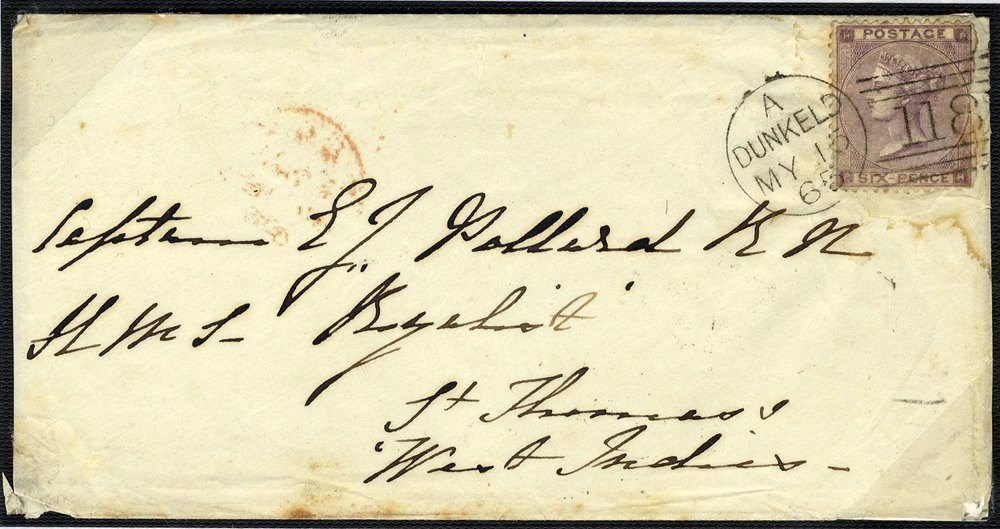 POSTAGE
SIX-PENCE
A
DUNKELD
MY 18
65
118
Captain E J Pollard R N
H M S "Ryalist"
St Thomas's
West Indies -